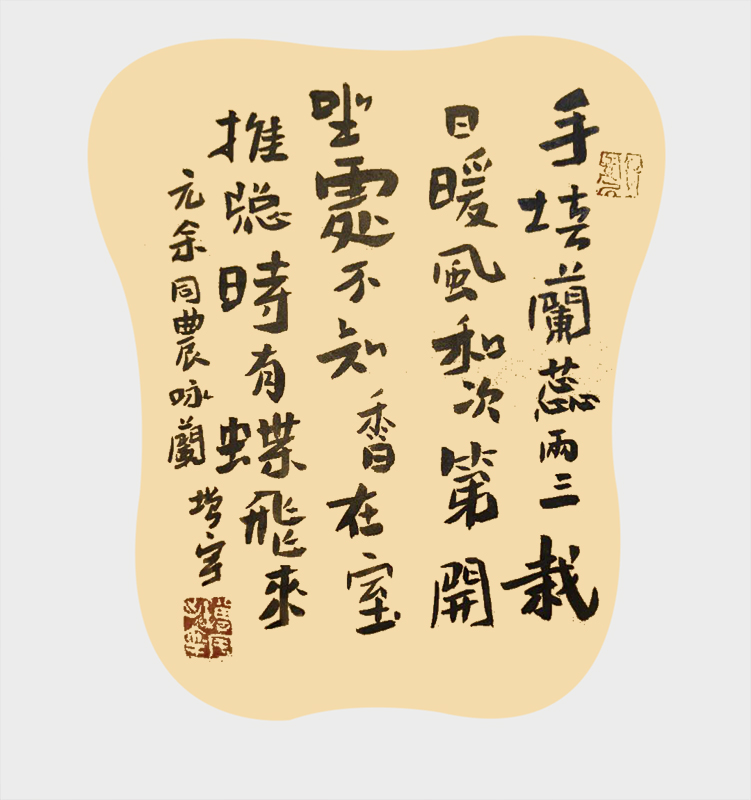 手培蘭蕊兩三栽
日暖風和次第開
坐處不知香在室
推牕時有蝶飛來
元余同農咏蘭 增宇